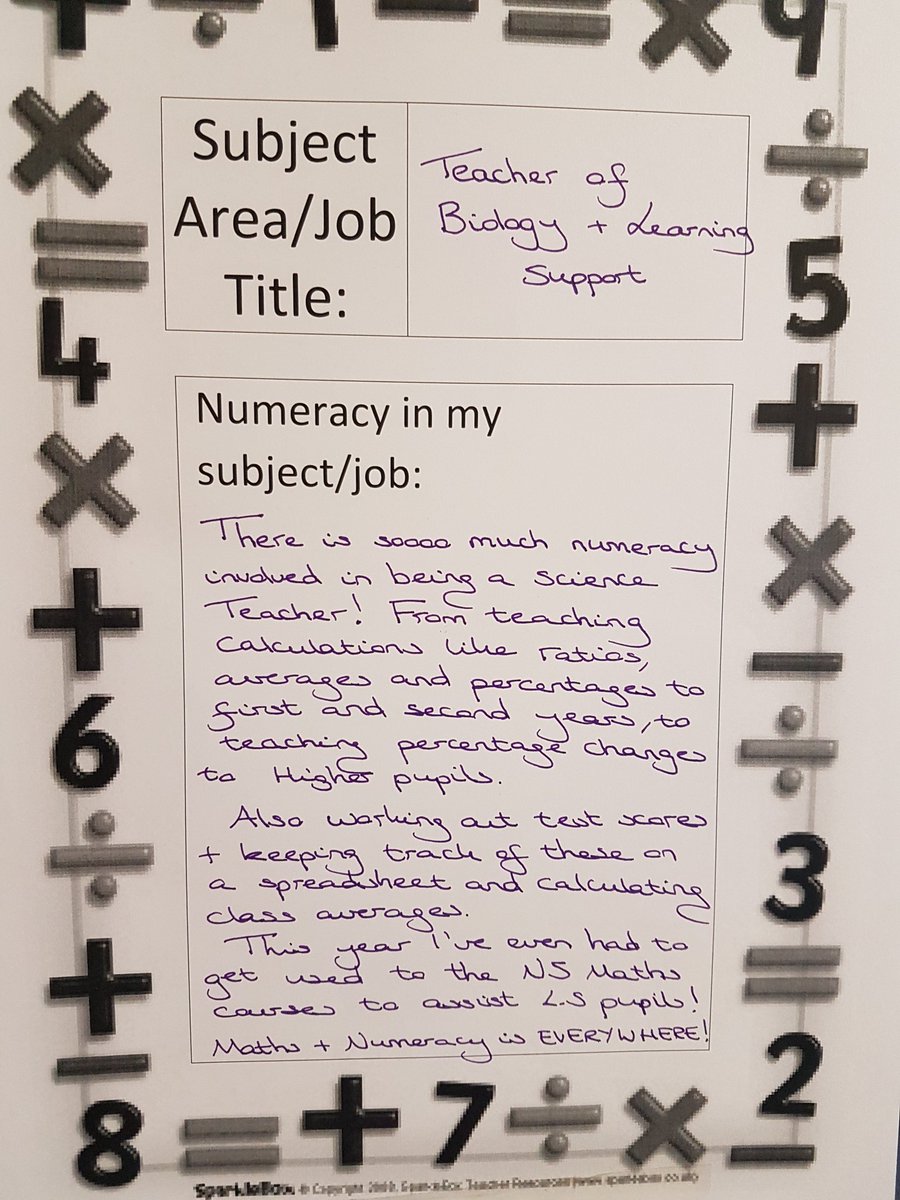 Subject
Area/Job
Title:
Teacher of
Biology + Learning
Support
Numeracy in my
subject/job:
There is soooo much numeracy
involved in being a science
Teacher! From teaching
calculations like ratios,
averages and percentages to
first and second years, to
teaching percentage changes
to Higher pupils.
Also working out test scores
+ keeping track of these on
a spreadsheet and calculating
class averages.
This year I've even had to
get used to the N5 Maths
courses to assist L.S pupils!
Maths + Numeracy is EVERYWHERE!
+ ÷ 1 − = × 9
×
=
4
×
+
6
÷
+
−
8 = + 7 ÷ ×
÷
5
+
×
−
÷
3
=
2
−
SparkleBox © Copyright